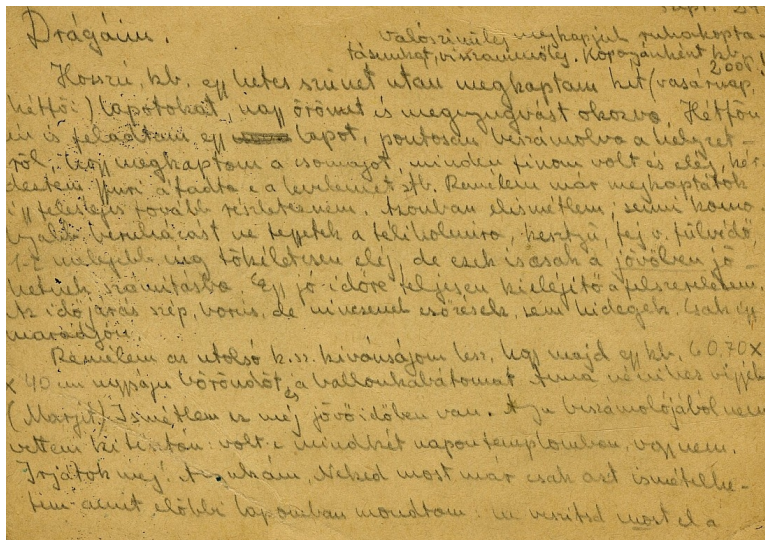 Szept. 24
Drágáim.
valószinüleg megkapjuk ruhakopta-
tásunkat, visszamenőleg. Koponánként kb.
200 P!
Hosszú, kb. egy hetes szünet után megkaptam két (vasárnap,
hétfői) lapotokat, nagy örömet és megnyugvást okozva. Hétfőn
én is feladtam egy lapot, pontosan beszámolva a helyzet-
ről, hogy megkaptam a csomagot, minden finom volt és elég, kér-
deztem Gyuri átadta e a levelemet stb. Remélem már megkaptátok
így felesleges tovább részleteznem. Azonban elismétlem, semmi komo-
lyabb beruházást ne tegyetek a téli holmira, kesztyü, fej v. fülvédő,
1-2 melegebb ing tökéletesen elég, de ezek is csak a jövőben jö-
hetnek számitásba. Egy jó időre teljesen kielégitő a felszerelésem.
Az idő járás szép, borús, de nincsenek esőzések, sem hidegek. Csak így
maradjon.
Remélem az utolsó k.sz. kivánságom lesz, hogy majd egy kb. 60.70 x
x 40 cm nagyságu böröndöt, és a ballonkabátomat Anna nénihez vigyék
(Margit) Ismétlem ez még jövő időben van. A beszámolójából nem
vettem ki tisztán: volt-e mindkét napon templomban, vagy nem.
Irjátok meg. Anyukám, Neked most már csak azt ismételhe-
tem amit előbbi lapomban mondtam: ne veszitsd most el a